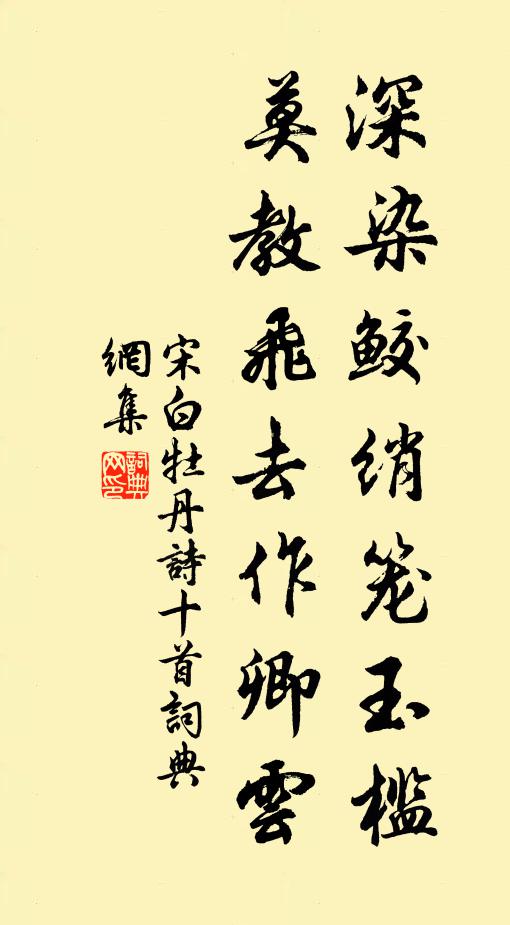 深染鲛绡笼玉槛
莫教飛去作卿雲
宋白牡丹詩十首詞典
網集
詞典网印